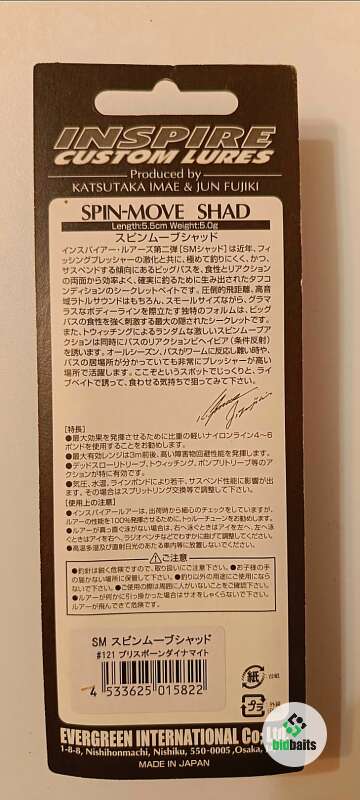 INSPIRE
CUSTOM LURES
Produced by
KATSUTAKA IMAE & JUN FUJIKI
SPIN-MOVE SHAD
Length:5.5cm Weight:5.0g
スピンムーブシャッド
インスパイアー・ルアーズ第二弾［SMシャッド］は近年、フィ
ッシングプレッシャーの激化と共に、極めて釣りにくく、かつ、
サスペンドする傾向にあるビッグバスを、食性とリアクション
の両面から効率よく、確実に釣るために生み出されたタフコ
ンディションのシークレットベイトです。圧倒的飛距離、高音
域ラトルサウンドはもちろん、スモールサイズながら、グラマ
ラスなボディーラインを際立たす独特のフォルムは、ビッグ
バスの食性を強く刺激する最大の隠されたシークレットです。
また、トウィッチングによるランダムな激しいスピンムーブア
クションは同時にバスのリアクションビヘイビア（条件反射）
を誘います。オールシーズン、バスがワームに反応し難い時や、
バスの居場所が分かっていても非常にプレッシャーが高い
場所で活躍します。ここぞというスポットでじっくりと、ライ
ブベイトで誘って、食わせる気持ちで狙ってみて下さい。
［特長］
●最大効果を発揮させるために比重の軽いナイロンライン4〜6
ポンドを使用することをお勧めします。
●最大有効レンジは3m前後、高い障害物回避性能を発揮します。
●デッドスローリトリーブ、トウィッチング、ポンプリトリーブ等のア
クションが特に有効です。
●気圧、水温、ラインポンドにより若干、サスペンド性能に影響が出
ます。その場合はスプリットリング交換等で調整して下さい。
［使用上の注意］
●インスパイアールアーは、出荷時から細心のチェックをしていますが、
ルアーの性能を100%発揮させるために、トゥルーチューンをお勧めします。
●ルアーが真っ直ぐ泳がない場合は、右へ泳ぐときはアイを左へ、左へ泳ぐ
ときはアイを右へ、ラジオペンチなどでわずかに曲げて調整してください。
●高温多湿及び直射日光のあたる車内等に放置しないでください。
⚠ご注意
●釣針は鋭く危険ですので、取り扱いにご注意下さい。●お子様の手
の届かない場所に保管して下さい。●釣り以外の用途にご使用になら
ないで下さい。●ご使用の際は周囲に人がいないことをご確認下さい。
●ルアーが何かに引っ掛かった場合はサオをしゃくらないで下さい。
ルアーが飛んできて危険です。
SM スピンムーブシャッド
#121 プリスポーンダイナマイト
4 533625 015822
紙
台紙
プラ
EVERGREEN INTERNATIONAL Co.,Ltd.
1-8-8, Nishihonmachi, Nishiku, 550-0005, Osaka,
MADE IN JAPAN
bidbaits